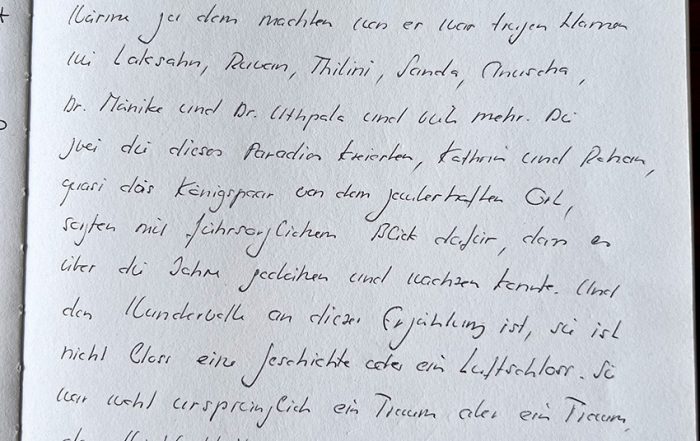 Wärme zu dem machten was er war trugen Namen
wie Laksahn, Ruwan, Thilini, Sanda, Anuscha,
Dr. Manike und Dr. Uthpala und viele mehr. Die
zwei die dieses Paradies kreierten, Kathrin und Rohan,
quasi das Königspaar von dem zauberhaften Ort,
sorgten mit führsorglichem Blick dafür, dass es
über die Jahre gedeihen und wachsen konnte. Und
das Wundervolle an dieser Erzählung ist, sie ist
nicht bloss eine Geschichte oder ein Luftschloss. Sie
war wohl ursprünglich ein Traum aber ein Traum,